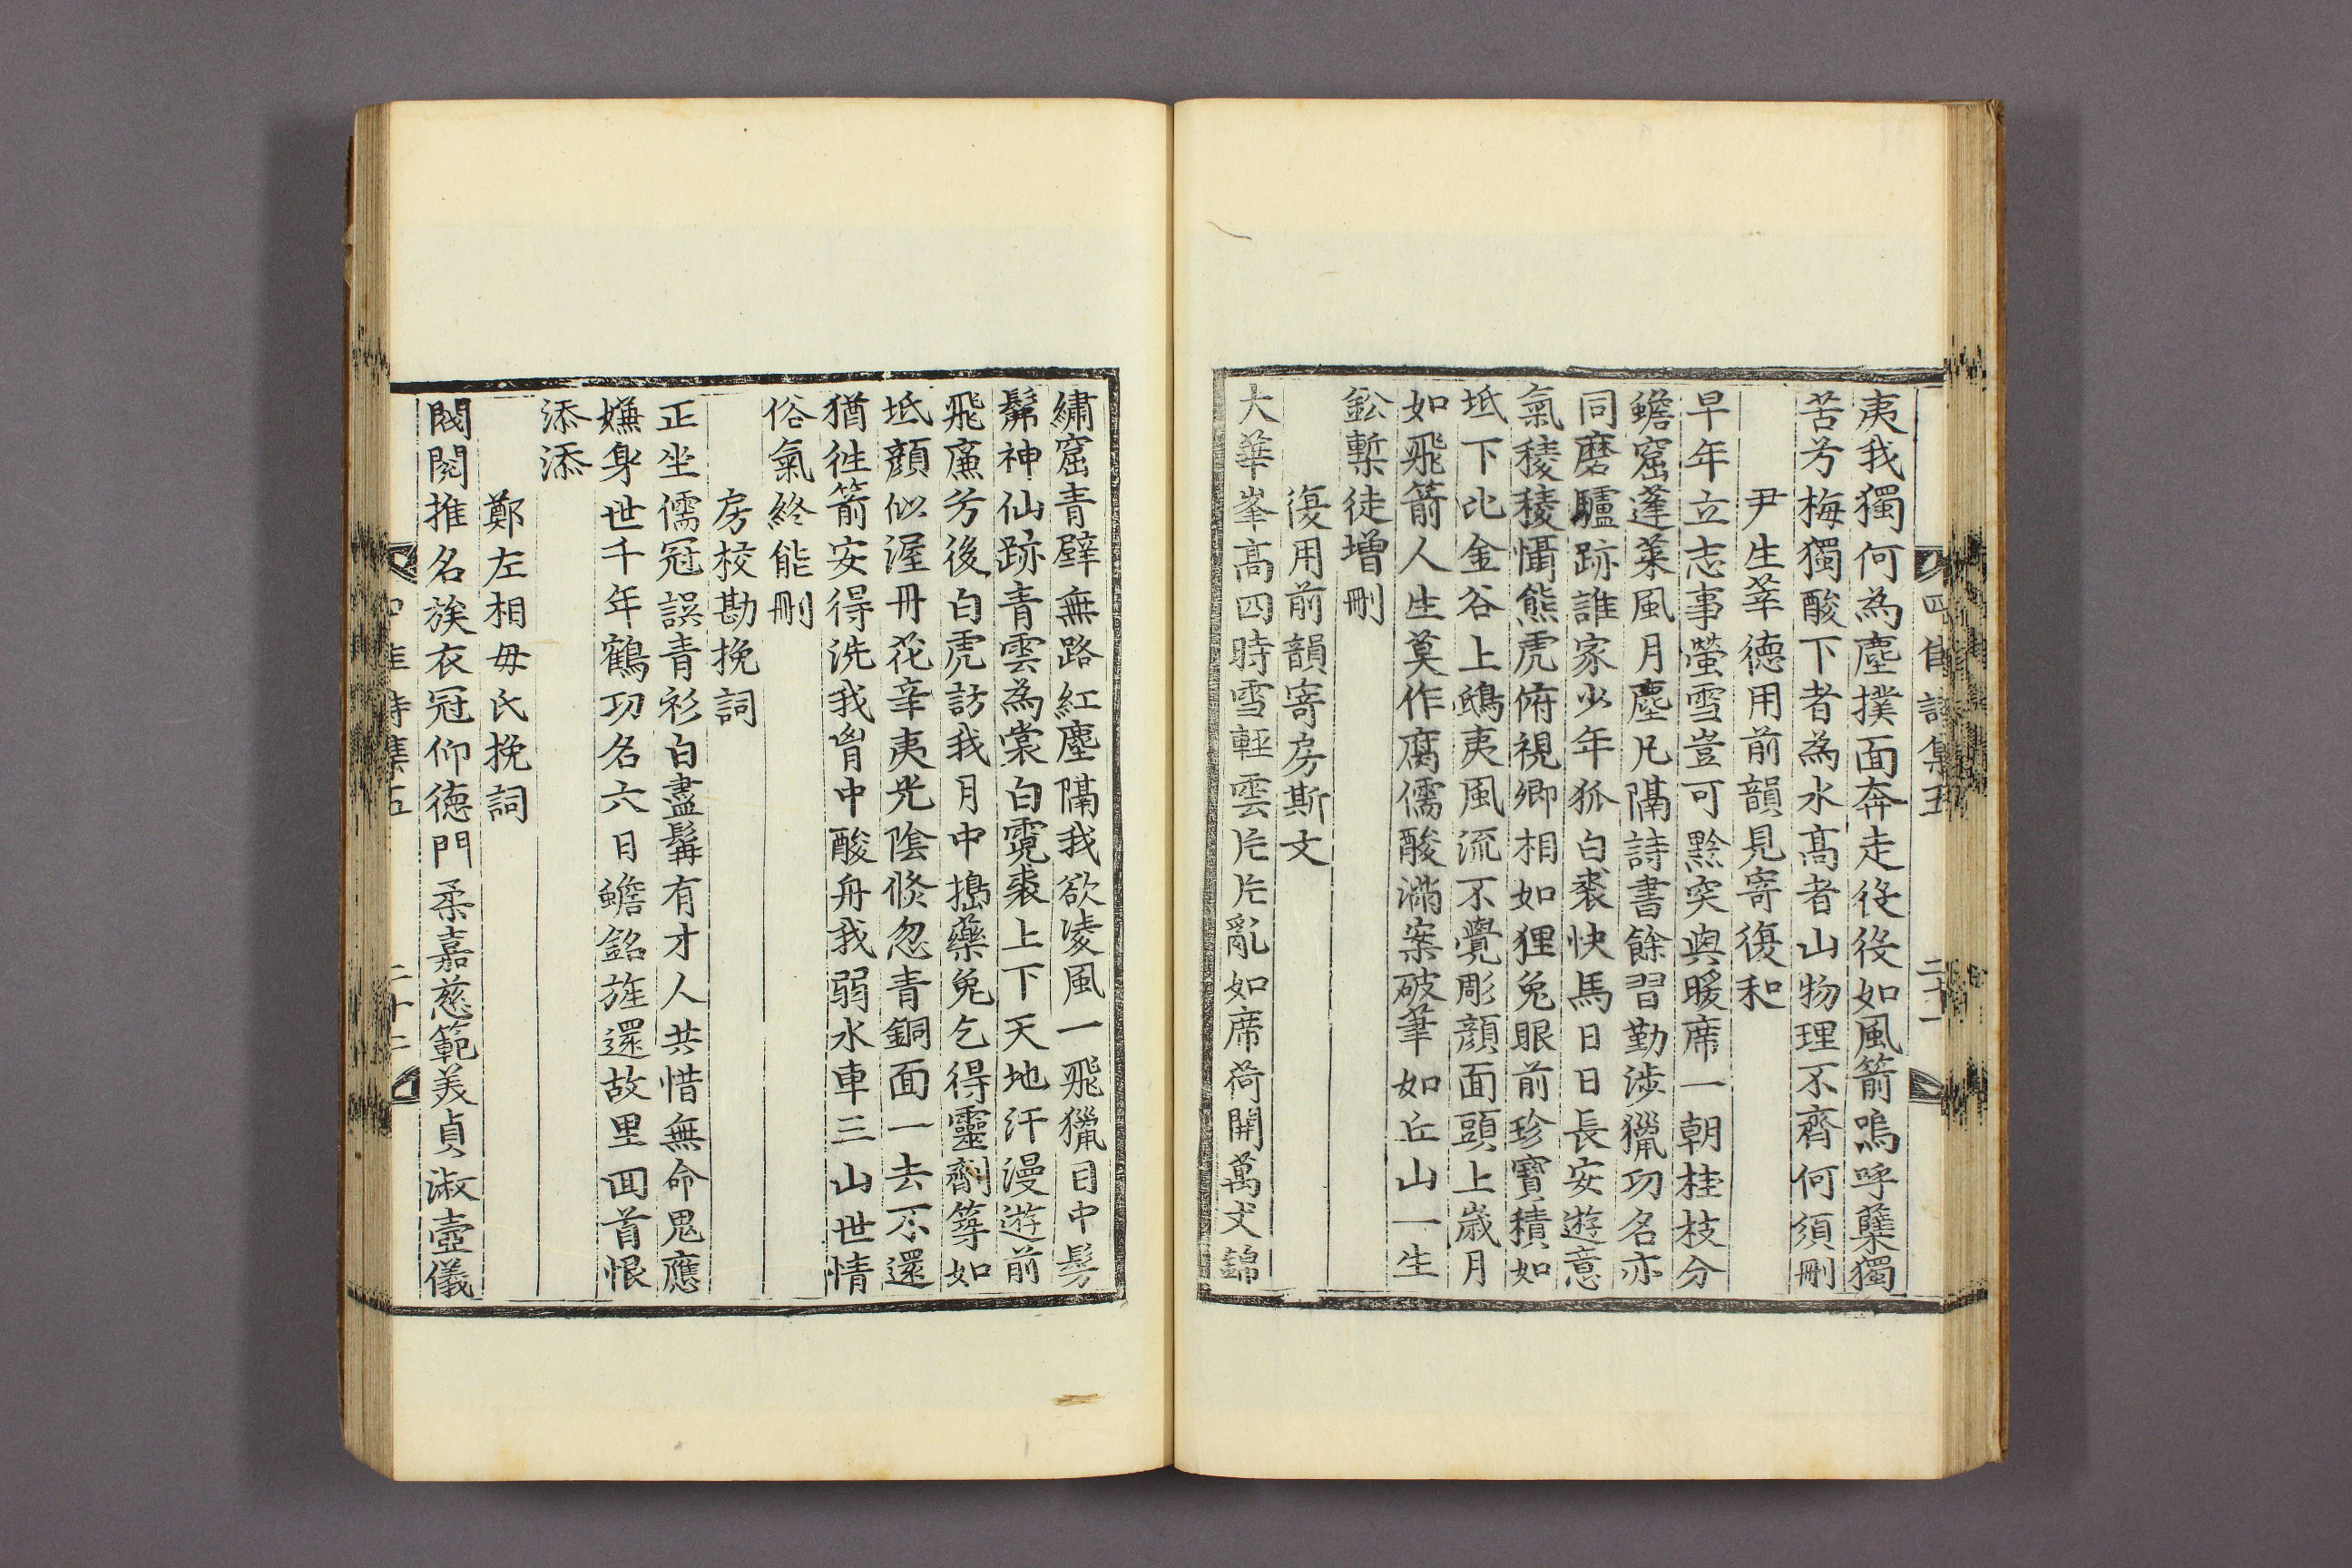 夷我獨何為塵撲面奔走役役如風箭嗚呼蘖獨
苦芳梅獨酸下者為水高者山物理不齊何須刪
尹生莘德用前韻見寄復和
早年立志事螢雪豈可黔突與暖席一朝桂枝分
蟾窟蓬萊風月塵凡隔詩書餘習勤涉獵功名亦
同磨驢跡誰家少年狐白裘快馬日日長安遊意
氣稜稜懾熊虎俯視卿相如狸兔眼前珍寶積如
坻下比金谷上鴟夷風流不覺彫顏面頭上歲月
如飛箭人生莫作腐儒酸滿案破筆如丘山一生
鈆槧徒增刪
復用前韻寄房斯文
大華峯高四時雪輕雲片片亂如席荷開萬丈錦
繡窟青壁無路紅塵隔我欲凌風一飛獵目中髣
髴神仙跡青雲為裳白霓裘上下天地汗漫遊前
飛廉芳後白虎訪我月中搗藥兔乞得靈劑等如
坻顏似渥丹花辛夷光陰倐忽青銅面一去不還
猶徃箭安得洗我胷中酸舟我弱水車三山世情
俗氣終能刪
房校勘挽詞
正坐儒冠誤青衫白盡髯有才人共惜無命鬼應
嫌身世千年鶴功名六日蟾銘旌還故里囬首恨
添添
鄭左相母氏挽詞
閥閱推名族衣冠仰德門柔嘉慈範美貞淑壼儀